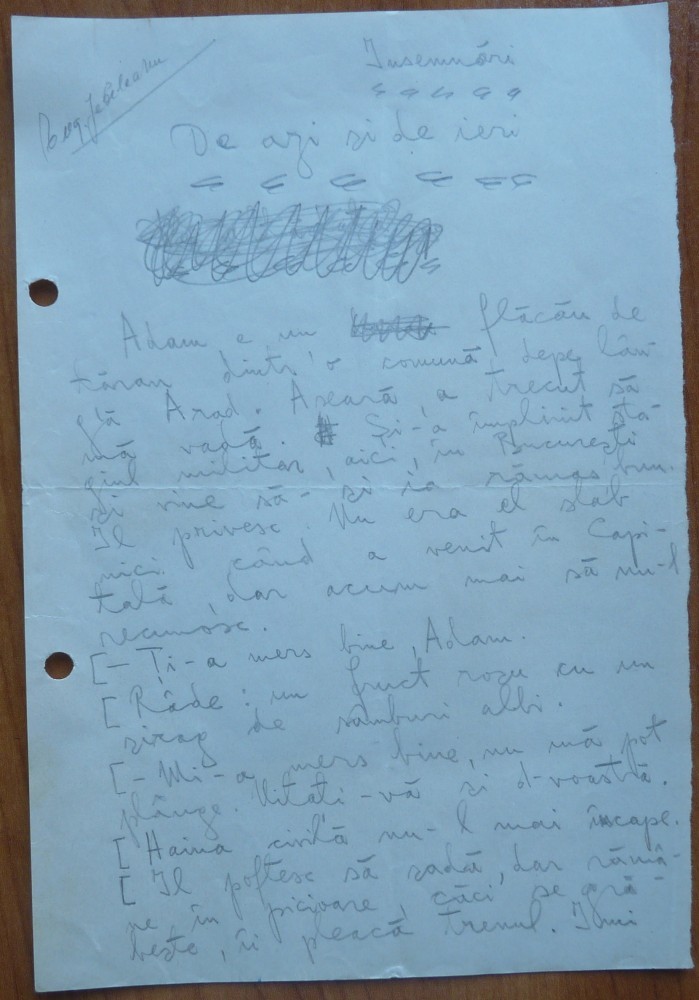 Eug. Jebeleanu
Însemnări
De azi și de ieri
Adam e un flăcău de
țăran dintr'o comună depe lân-
gă Arad. Aseară a trecut să
mă vadă. Și-a împlinit sta-
giul militar, aici, în București
și vine să-și ia rămas bun.
Îl privesc. Nu era el slab
nici când a venit în Capi-
tală, dar acum mai să nu-l
recunosc.
[- Ți-a mers bine, Adam.
[ Râde: un fruct roșu cu un
șirag de sâmburi albi.
[- Mi-a mers bine, nu mă pot
plânge. Uitați-vă și d-voastră.
[ Haina civilă nu-l mai încape.
[ Îl poftesc să șadă, dar rămâ-
ne în picioare, căci se gră-
bește, îi pleacă trenul. Îmi